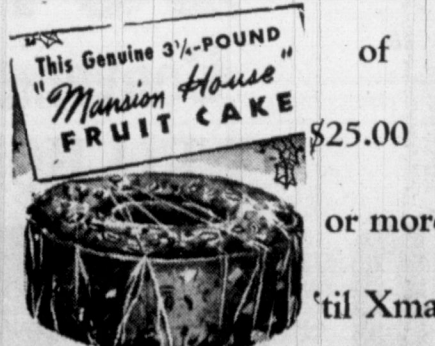 This Genuine 3¼-POUND
"Mansion House"
FRUIT CAKE
of
$25.00
or more
'til Xma